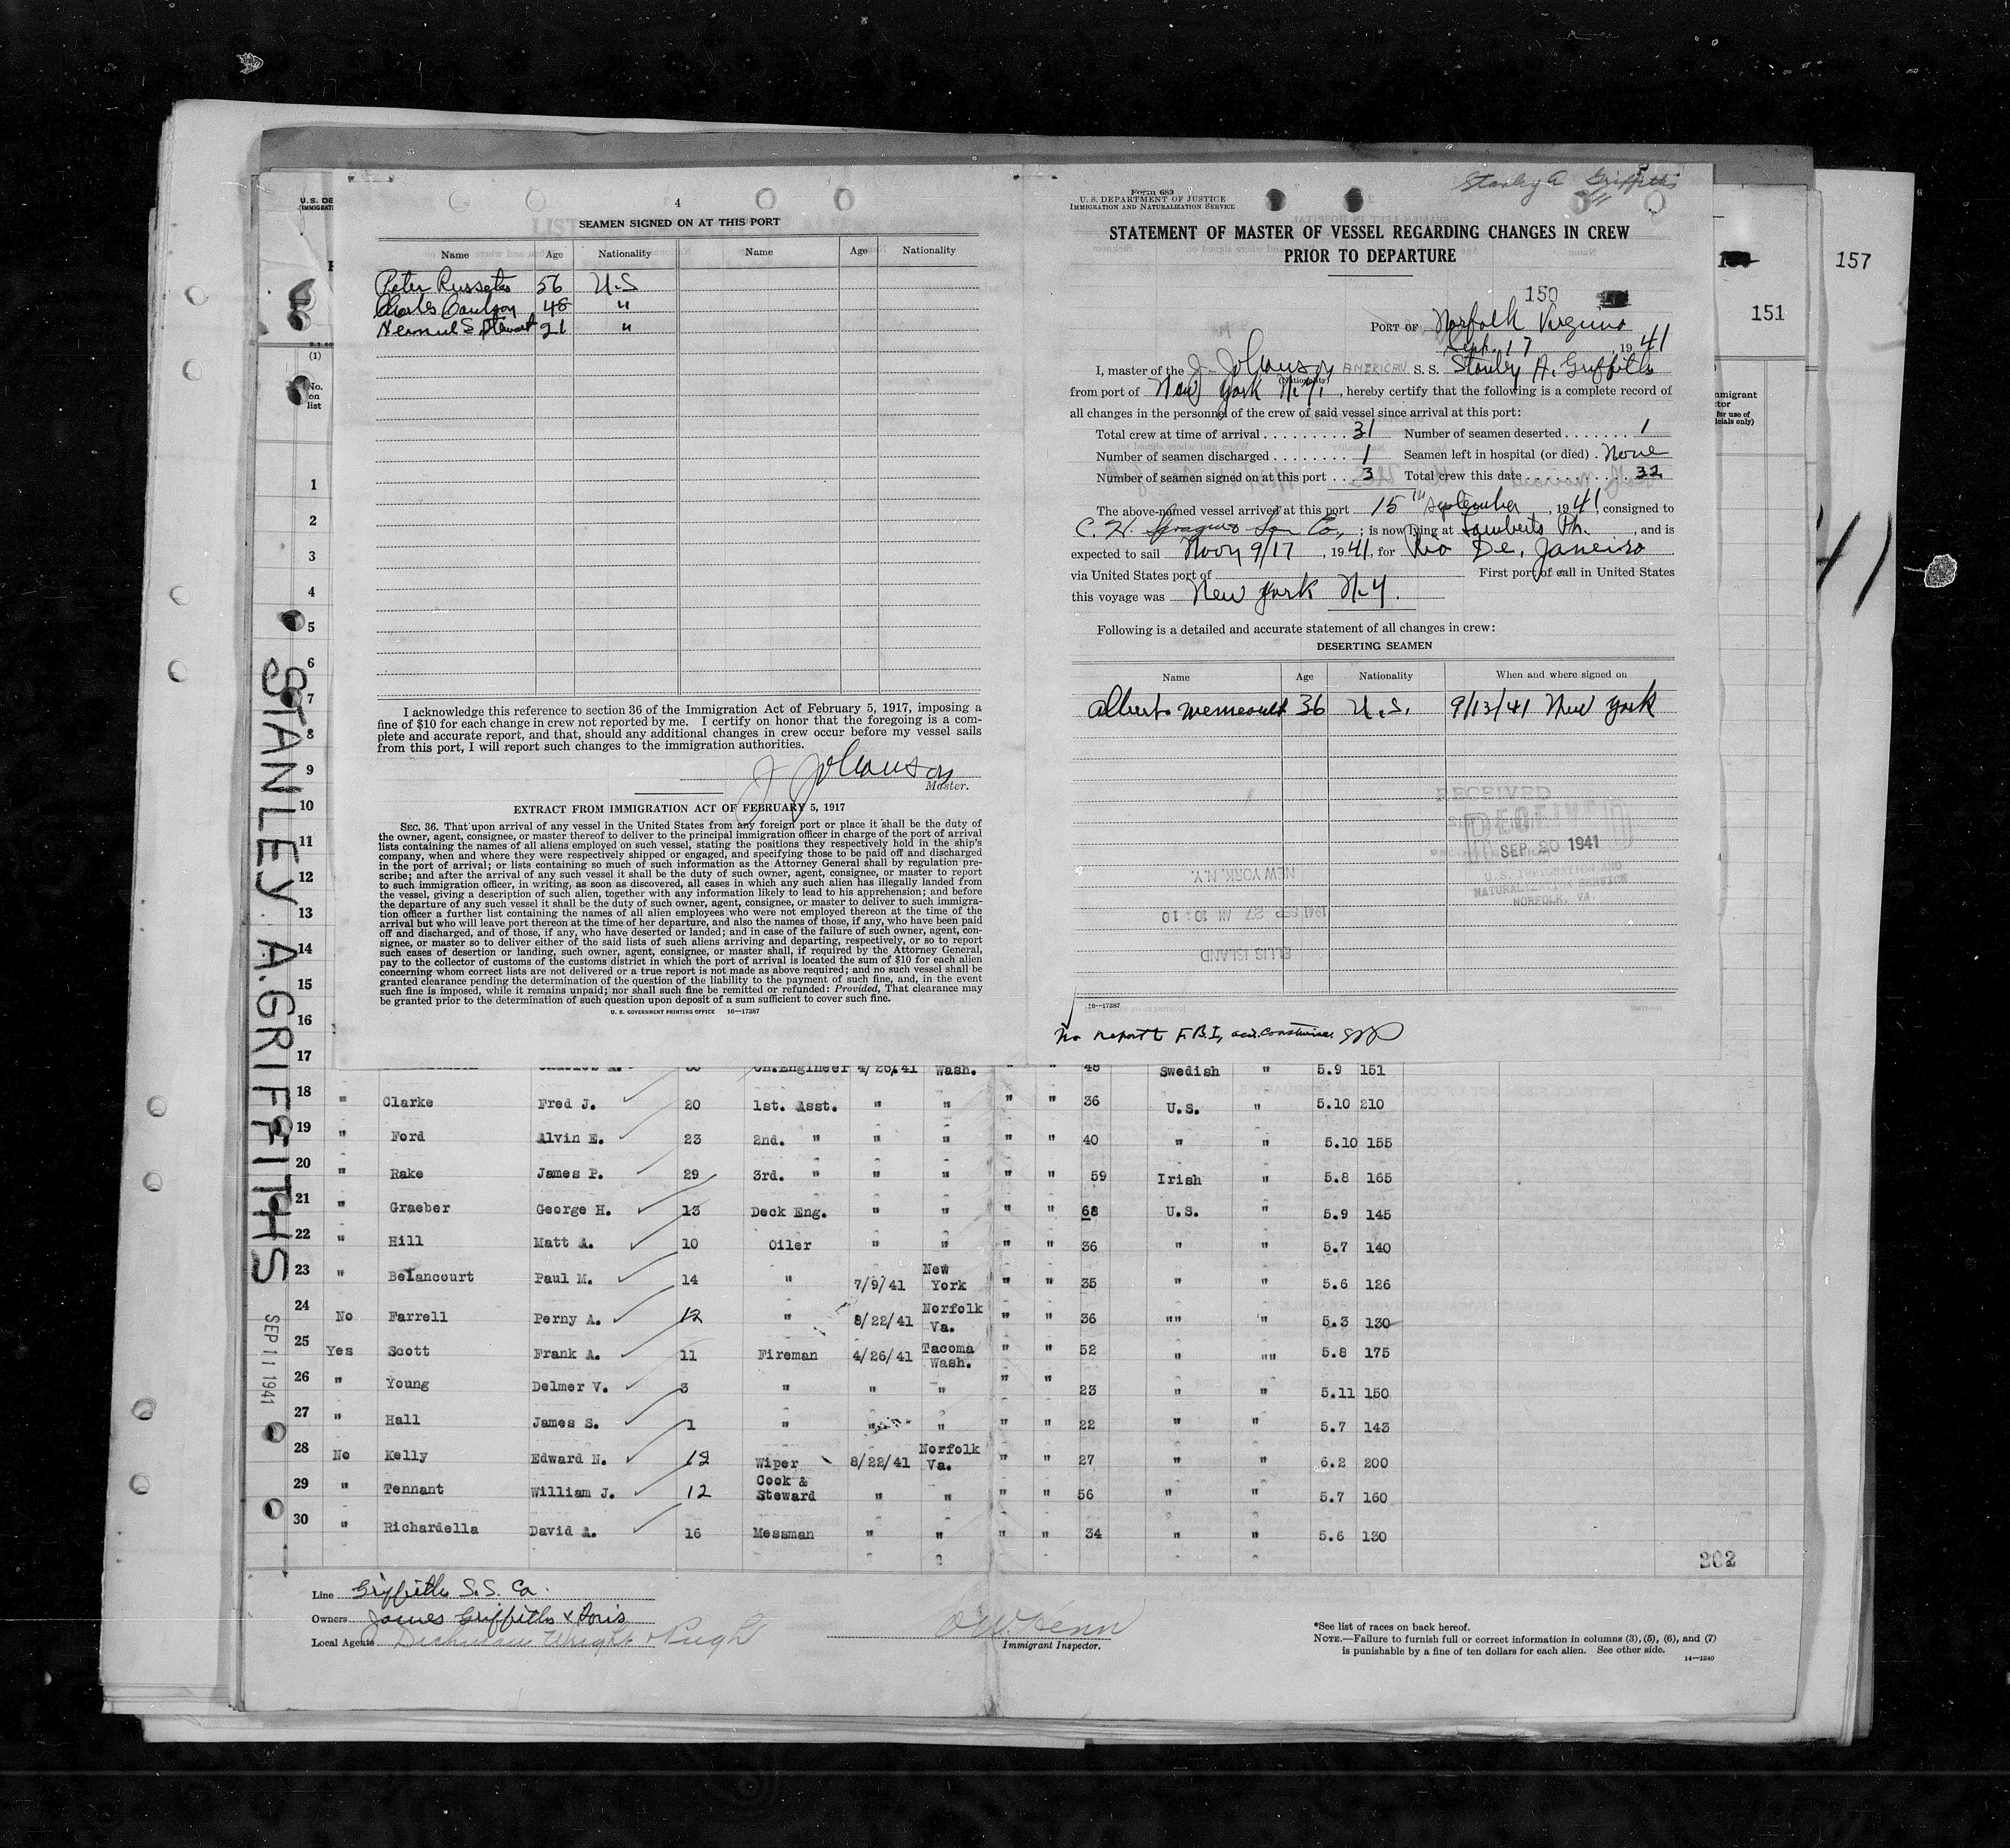 4
SEAMEN SIGNED ON AT THIS PORT
Name Age Nationality Name Age Nationality
Peter 56 U.S
Charles 48 "
S Stewart 21 "
I acknowledge this reference to section 36 of the Immigration Act of February 5, 1917, imposing a
fine of $10 for each change in crew not reported by me. I certify on honor that the foregoing is a com-
plete and accurate report, and that, should any additional changes in crew occur before my vessel sails
from this port, I will report such changes to the immigration authorities.
J Johanson
Master.
EXTRACT FROM IMMIGRATION ACT OF FEBRUARY 5, 1917
SEC. 36. That upon arrival of any vessel in the United States from any foreign port or place it shall be the duty of
the owner, agent, consignee, or master thereof to deliver to the principal immigration officer in charge of the port of arrival
lists containing the names of all aliens employed on such vessel, stating the positions they respectively hold in the ship's
company, when and where they were respectively shipped or engaged, and specifying those to be paid off and discharged
in the port of arrival; or lists containing so much of such information as the Attorney General shall by regulation pre-
scribe; and after the arrival of any such vessel it shall be the duty of such owner, agent, consignee, or master to report
to such immigration officer, in writing, as soon as discovered, all cases in which any such alien has illegally landed from
the vessel, giving a description of such alien, together with any information likely to lead to his apprehension; and before
the departure of any such vessel it shall be the duty of such owner, agent, consignee, or master to deliver to such immigra-
tion officer a further list containing the names of all alien employees who were not employed thereon at the time of the
arrival but who will leave port thereon at the time of her departure, and also the names of those, if any, who have been paid
off and discharged, and of those, if any, who have deserted or landed; and in case of the failure of such owner, agent, con-
signee, or master so to deliver either of the said lists of such aliens arriving and departing, respectively, or so to report
such cases of desertion or landing, such owner, agent, consignee, or master shall, if required by the Attorney General,
pay to the collector of customs of the customs district in which the port of arrival is located the sum of $10 for each alien
concerning whom correct lists are not delivered or a true report is not made as above required; and no such vessel shall be
granted clearance pending the determination of the question of the liability to the payment of such fine, and, in the event
such fine is imposed, while it remains unpaid; nor shall such fine be remitted or refunded: Provided, That clearance may
be granted prior to the determination of such question upon deposit of a sum sufficient to cover such fine.
U. S. GOVERNMENT PRINTING OFFICE 16—17387
Form 689
U. S. DEPARTMENT OF JUSTICE
IMMIGRATION AND NATURALIZATION SERVICE
Stanley A Griffiths
STATEMENT OF MASTER OF VESSEL REGARDING CHANGES IN CREW
PRIOR TO DEPARTURE
150
PORT OF Norfolk Virginia
Sept. 17, 1941
I, master of the J. Johanson AMERICAN S. S. Stanley A. Griffiths
(Nationality)
from port of New York N.Y., hereby certify that the following is a complete record of
all changes in the personnel of the crew of said vessel since arrival at this port:
Total crew at time of arrival 31 Number of seamen deserted 1
Number of seamen discharged 1 Seamen left in hospital (or died) None
Number of seamen signed on at this port 3 Total crew this date 32
The above-named vessel arrived at this port 15th September, 1941, consigned to
C. H. Sprague Son Co.,; is now lying at Lamberts Pt., and is
expected to sail Noon 9/17, 1941, for Rio De. Janeiro
via United States port of First port of call in United States
this voyage was New York N.Y.
Following is a detailed and accurate statement of all changes in crew:
DESERTING SEAMEN
Name Age Nationality When and where signed on
Albert 36 U.S. 9/13/41 New York
RECEIVED
RECEIVED
SEP 20 1941
U.S. IMMIGRATION AND
NATURALIZATION SERVICE
NORFOLK, VA.
NEW YORK, N.Y.
1941 SEP 27 AM 10 10
ELLIS ISLAND
16—17387
No report to F.B.I,
157
151
STANLEY A. GRIFFITHS
SEP 11 1941
U.S. DE
IMMIGRAT
(1)
No.
on
list
mmigrant
ctor
for use of
icials only)
1
2
3
4
5
6
7
8
9
10
11
12
13
14
15
16
17 Ch.Engineer 4/26/41 Wash. " " 48 Swedish " 5.9 151
18 " Clarke Fred J. 20 1st. Asst. " " " " 36 U.S. " 5.10 210
19 " Ford Alvin E. 23 2nd. " " " " " 40 " " 5.10 155
20 " Rake James P. 29 3rd. " " " " " 59 Irish " 5.8 165
21 " Graeber George H. 13 Deck Eng. " " " " 68 U.S. " 5.9 145
22 " Hill Matt A. 10 Oiler " " " " 36 " " 5.7 140
23 " Betancourt Paul M. 14 " 7/9/41 New York " " 35 " " 5.6 126
24 No Farrell Perny A. 12 " 8/22/41 Norfolk Va. " " 36 "" " 5.3 130
25 Yes Scott Frank A. 11 Fireman 4/26/41 Tacoma Wash. " " 52 " "" 5.8 175
26 " Young Delmer V. 3 " " " " " 23 " " 5.11 150
27 " Hall James S. 1 " " " " " 22 " " 5.7 143
28 No Kelly Edward N. 12 Wiper 8/22/41 Norfolk Va. " " 27 " " 6.2 200
29 " Tennant William J. 12 Cook & Steward " " " " 56 " " 5.7 160
30 " Richardella David A. 16 Messman " " " " 34 " " 5.6 130
202
Line Griffiths S.S. Co.
Owners James Griffiths & Sons
Local Agents Wright & Pugh
Immigrant Inspector.
*See list of races on back hereof.
NOTE.—Failure to furnish full or correct information in columns (3), (5), (6), and (7)
is punishable by a fine of ten dollars for each alien. See other side.
14—1240